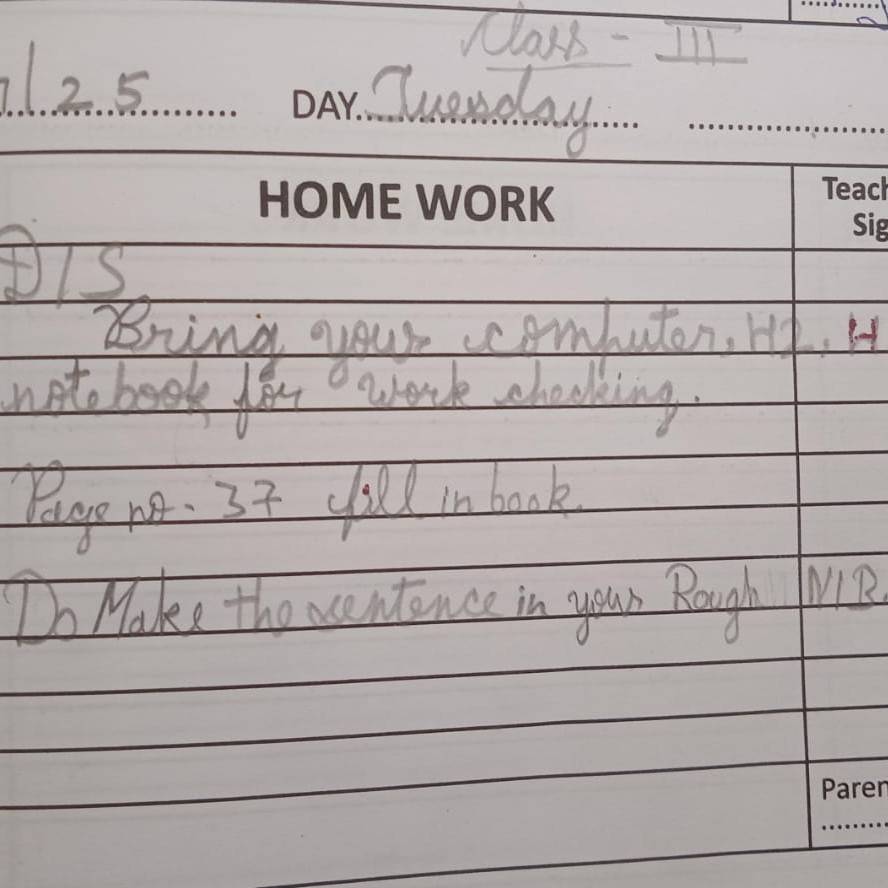 Class - III
1/25 DAY. Tuesday
HOME WORK
Teach
Sig
D/S
Bring your computer, H2, H
notebook for work checking.
Page no. 37 fill in book.
Do Make the sentence in your Rough N/B.
Paren